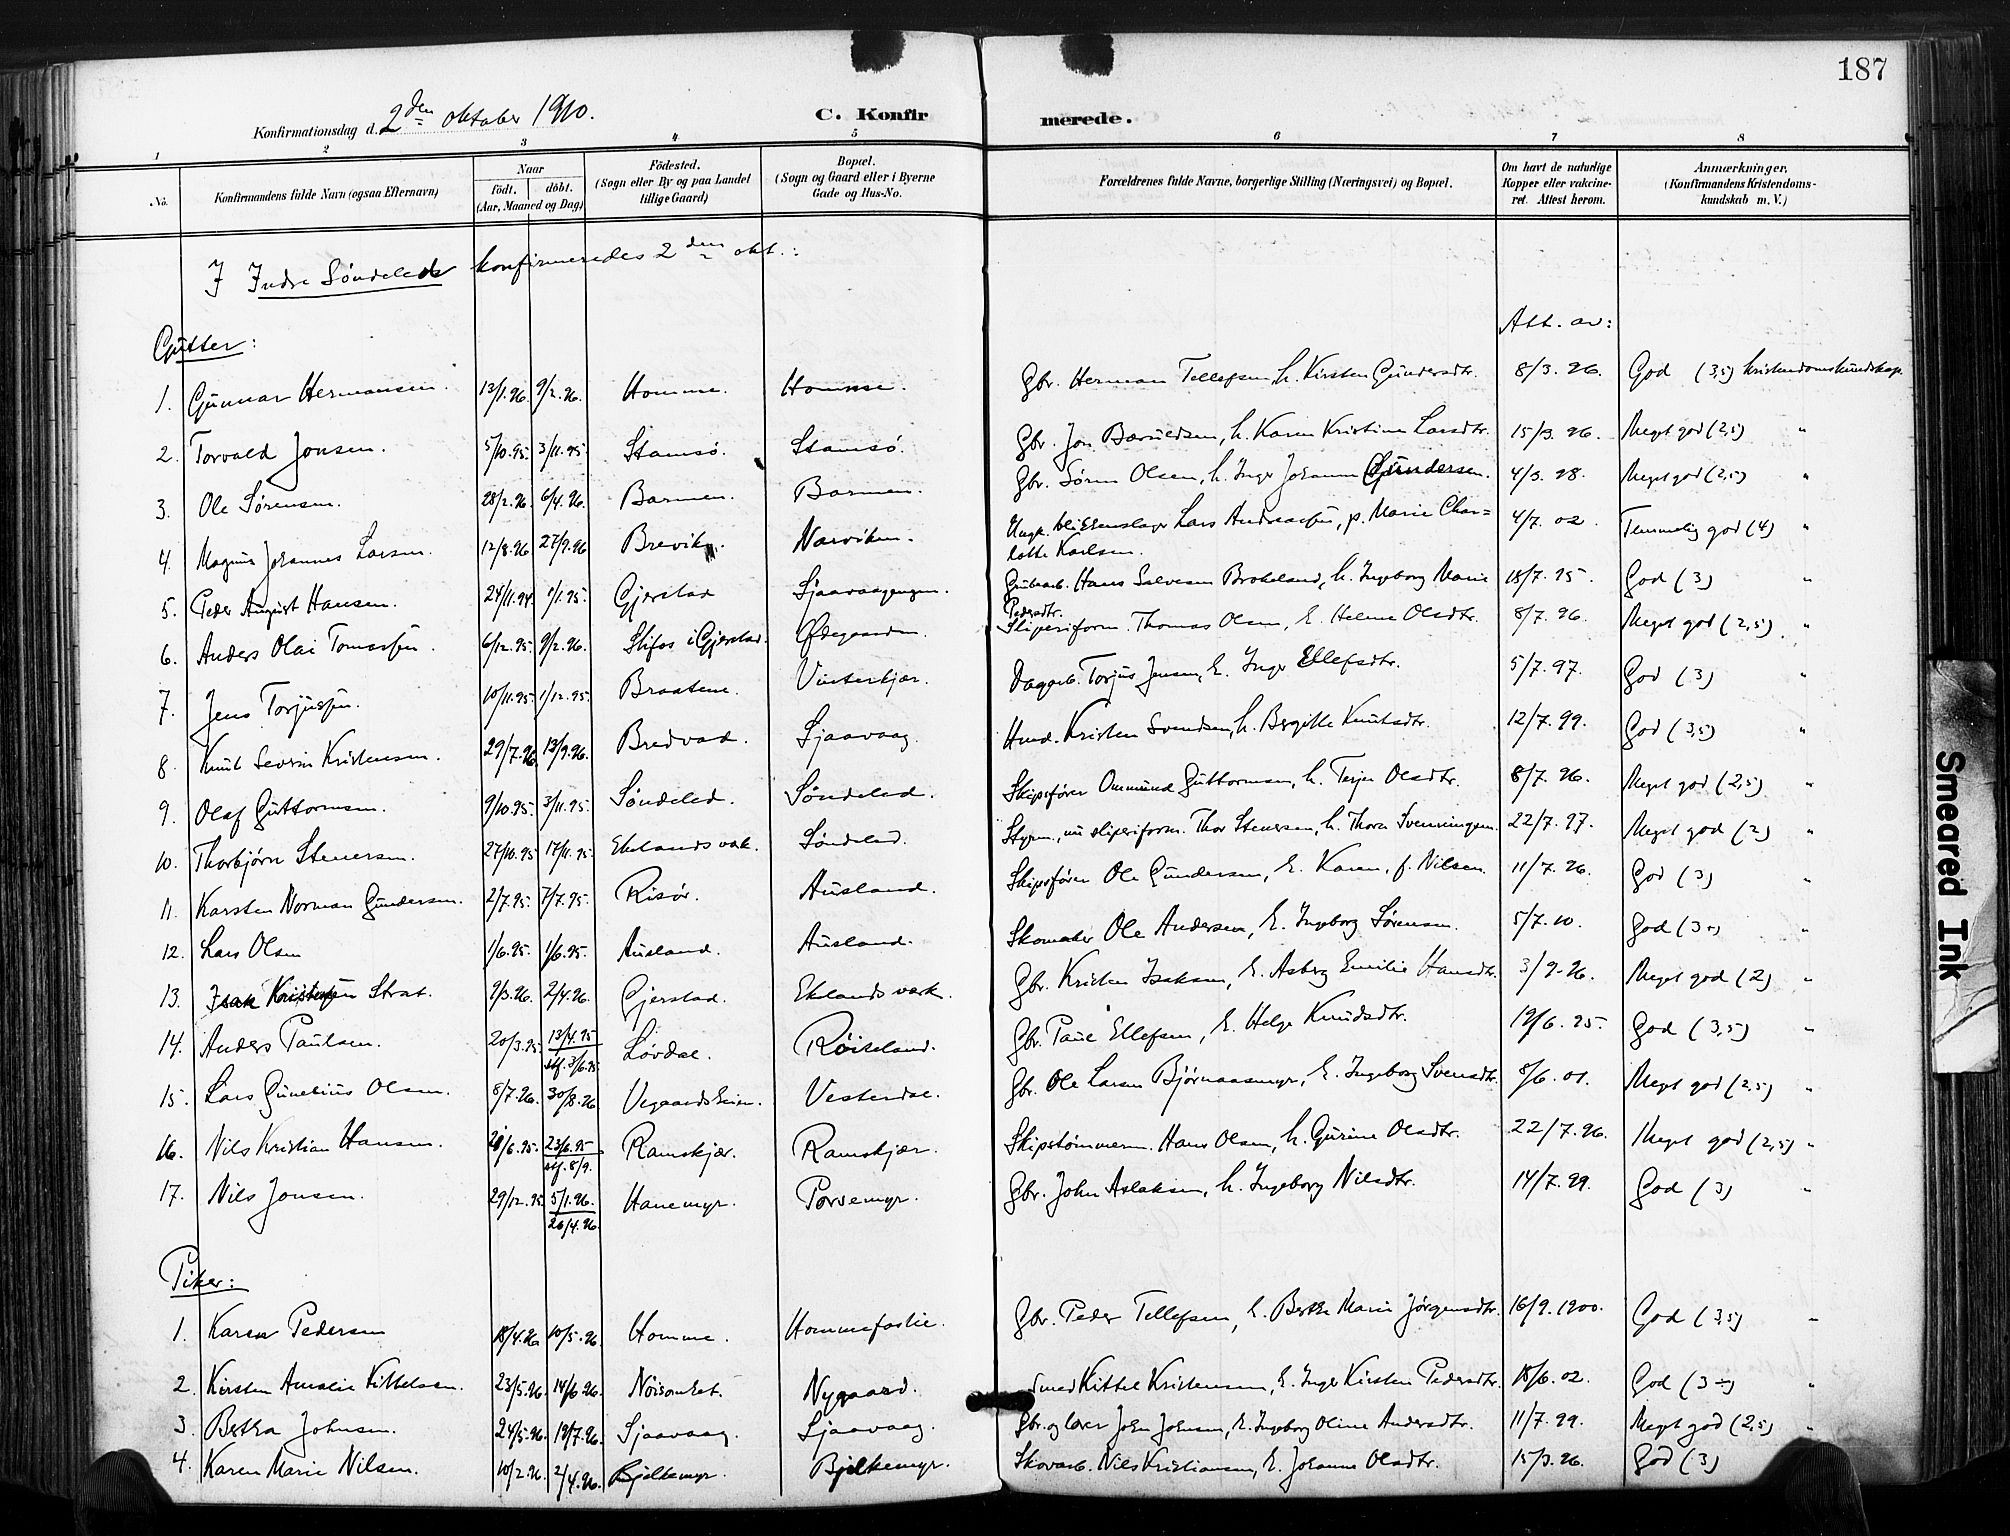 187
Konfirmationsdag d. 2den oktober 1910. C. Konfir merede.
1 2 3 4 5 6 7 8
No. Konfirmandens fulde Navn (ogsaa Efternavn) Naar födt. döbt. (Aar, Maaned og Dag) Födested. (Sogn eller By og paa Landet tillige Gaard) Bopæl. (Sogn og Gaard eller i Byerne Gade og Hus-No. Forældrenes fulde Navne, borgerlige Stilling (Næringsvei) og Bopæl. Om havt de naturlige Kopper eller vakcineret. Attest herom. Anmærkninger. (Konfirmandens Kristendomskundskab m. V.)
I Indre Søndeled konfirmeredes 2den okt.:
Att. av:
Gutter:
1. Gunnar Hermansen. 13/1.96. 9/2.96. Homme. Homme. Gbr. Herman Tellefsen, h. Kirsten Gundersdtr. 8/3.96. God (3,5) kristendomskundskap.
2. Torvald Jonsen. 5/10.95. 3/11.95. Stamsø. Stamsø. Gbr. Jon Bæruldsen, h. Karen Kristine Larsdtr. 15/3.96. Meget god (2,5) "
3. Ole Sørensen. 28/2.96. 6/4.96. Barmen. Barmen. Gbr. Søren Olsen, h. Inger Johanne Gundersen. 4/3.98. Meget god (2,5) "
4. Magnus Johannes Larsen. 12/8.96 27/9.96 Brevik. Narviken. Ungk. blikkenslager Lars Andreassen, p. Marie Char=
lotte Karlsen. 4/7.02. Temmelig god (4) "
5. Peder August Hansen. 24/11.94. 1/1.95. Gjerstad Sjaavaagengen. Grubearb. Hans Salvesen Brokeland, h. Ingeborg Marie
Pedersdtr. 18/7.95. God (3) "
6. Anders Olai Tomassen. 6/12.95. 9/2.96. Slifos i Gjerstad. Ødegaarden. Sliperiform. Thomas Olsen, E. Helene Olsdtr. 8/7.96. Meget god (2,5). "
7. Jens Torjussen. 10/11.95. 1/12.95. Braatene. Vinterkjær. Dagarb. Torjus Jensen, E. Inger Ellefsdtr. 5/7.97. God (3) "
8. Knut Severin Kristensen. 29/7.96. 13/9.96. Bredvad. Sjaavaag. Husd. Kristen Svendsen, h. Bergitte Knutsdtr. 12/7.99. God (3,5) "
9. Olaf Guttormsen. 9/10.95. 3/11.95. Søndeled. Søndeled. Skipsfører Ommund Guttormsen, h. Terjer Olsdtr. 8/7.96. Meget god (2,5) "
10. Thorbjørn Stenersen. 27/10.95. 17/11.95. Eklandsvak. Søndeled. Styrm., nu sliperiform. Thor Stenersen, h. Thora Svenningsen. 22/7.97. Meget god (2) "
11. Karsten Norman Gundersen. 2/7.95. 7/7.95. Risør. Ausland. Skipsfører Ole Gundersen, E. Karen, f. Nilsen. 11/7.96. God (3) "
12. Lars Olsen 1/6.95. 1/6.95. Ausland. Ausland. Skomaker Ole Andersen, E. Ingeborg Sørensen. 5/7.10. God (3÷) "
13. Isak Kristensen Strat. 9/3.96. 2/4.96. Gjerstad. Eklandsværk. Gbr. Kristen Isaksen, E. Asberg Emilie Hansdtr. 3/9.96. Meget god (2) "
14. Anders Paulsen. 20/3.95. 13/4.95 stf. 3/6.95. Løvdal. Røiseland. Gbr. Paul Ellefsen, E. Helge Knudsdtr. 19/6.95. God (3,5) "
15. Lars Gunelius Olsen. 8/7.96. 30/8.96 Vegaardsheien. Vesterdal. Gbr. Ole Larsen Bjørnaasmyr, E. Ingeborg Svensdtr. 8/6.01. Meget god (2,5) "
16. Nils Kristian Hansen. 21/6.95. 23/6.95 stf. 8/9. Ramskjær. Ramskjær. Skipstømmerm. Hans Olsen, h. Gurine Olsdtr. 22/7.96. Meget god (2,5) "
17. Nils Jonsen. 29/12.95. 5/1.96. 26/4.96. Hanemyr. Porsemyr. Gbr. John Aslaksen, h. Ingeborg Nilsdtr. 14/7.99. God (3) "
Piker:
1. Karen Pedersen 18/4.96 10/5.96 Homme. Hommefostie. Gbr. Peder Tellefsen, h. Berthe Marie Jørgensdtr. 16/9.1900. God (3,5) "
2. Kirsten Amalie Kittelsen. 23/5.96 14/6.96. Nøisomhet. Nygaard. Smed Kittel Kristensen, E. Inger Kirsten Pedersdtr. 18/6.02. God (3÷) "
3. Betha Johnsen. 24/5.96. 19/7.96. Sjaavaag. Sjaavaag. Gbr. og lærer John Johnsen, E. Ingeborg Oline Andersdtr. 11/7.99. Meget god (2,5) "
4. Karen Marie Nilsen. 10/2.96. 2/4.96. Bjelkemyr. Bjelkemyr. Skovarb. Nils Kristiansen, E. Johanne Olsdtr. 15/3.96. God (3) "
Smeared Ink